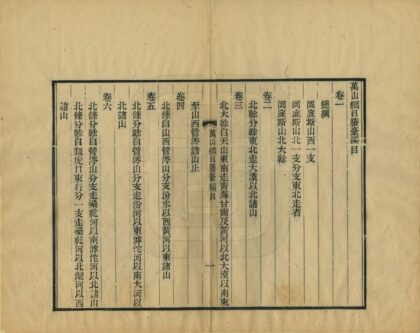 萬山綱目編目
卷一
總綱
岡底斯山西一支
岡底斯山北一支分東北走者
岡底斯山北大榦
卷二
北榦分榦東北走大漠以北諸山
卷三
北大榦自天山東南走青海甘肅及黃河以北大漠以南東
萬山綱目編目
一
至山西管涔諸山止
卷四
北條自山西管涔山分支汾水以西黃河以東諸山
卷五
北條分榦自管涔山分支走汾河以東滹沱河以南大河以
北諸山
卷六
北條分榦自管涔山分支走桑乾河以南滹沱河以北諸山
北條分榦自殺虎口東行分一支走桑乾河以北潮河以西
諸山